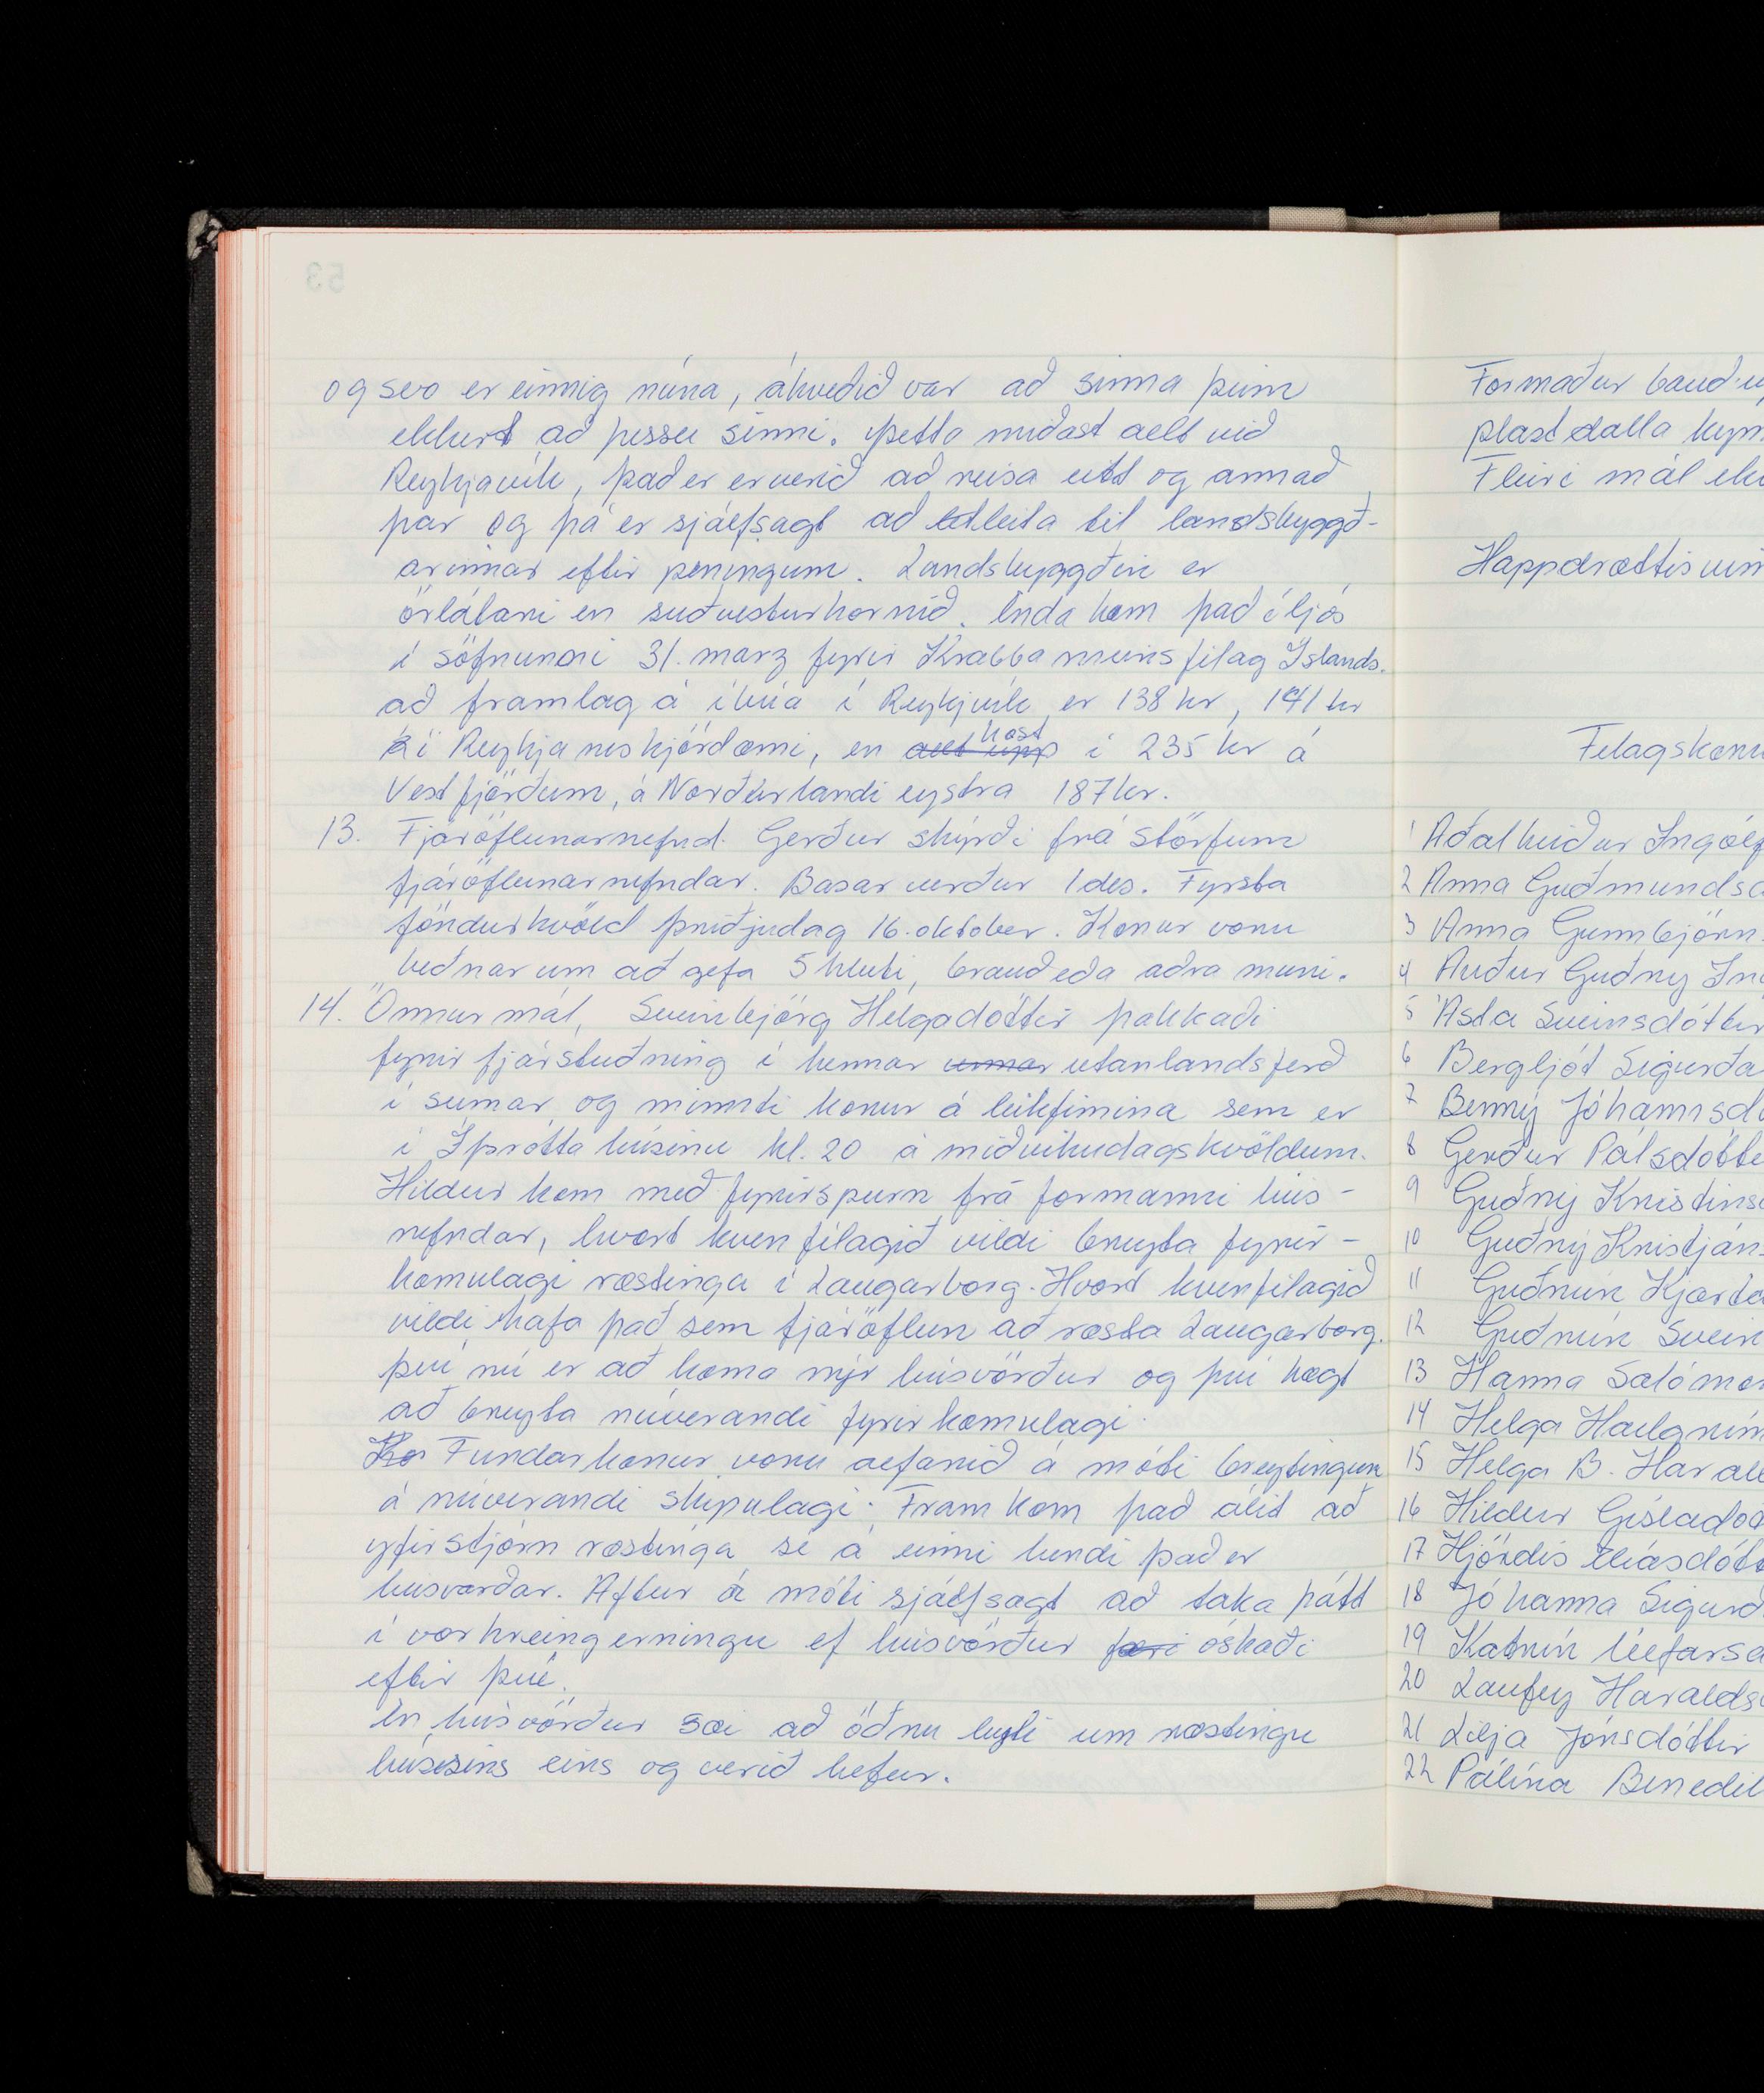 og svo er einnig núna, ákveðið var að sinna þeim
ekkert að þessu sinni. Þetta miðast allt við
Reykjavík, það er er verið að reisa eitt og annað
þar og þá er sjálfsagt að leita til landsbyggð-
arinnar eftir peningum. Landsbyggðin er
örlátari en suðvesturhornið. Enda kom það í ljós
í söfnunni 31. marz fyrir Krabbameinsfélag Íslands.
að framlag á íbúa í Reykjvík er 138 kr, 141 kr
í Reykjaneskjördæmi, en allt upp hæst í 235 kr á
Vestfjörðum, á Norðurlandi eystra 187 kr.
13. Fjáröflunarnefnd. Gerður skýrði frá störfum
fjáröflunarnefndar. Basar verður 1 des. Fyrsta
föndurkvöld þriðjudag 16. oktober. Konur voru
beðnar um að gefa 5 hluti, brauð eða aðra muni.
14. Önnur mál, Sveinbjörg Helgadóttir þakkaði
fyrir fjárstuðning í hennar utanlandsferð
í sumar og minnti konur á leikfimina sem er
í Íþróttahúsinu kl. 20 á miðvikudagskvöldum.
Hildur kom með fyrirspurn frá formanni hús-
nefndar, hvort kvenfélagið vildi breyta fyrir-
komulagi ræstinga í Laugarborg. Hvort kvenfélagið
vildi hafa það sem fjáröflun að ræsta Laugarborg.
því nú er að koma nýr húsvörður og því hægt
að breyta núverandi fyrirkomulagi.
Ko Fundarkonur voru alfarið á móti breytingum
á núverandi skipulagi. Fram kom það álit að
yfirstjórn ræstinga sé á einni hendi það er
húsvarðar. Aftur á móti sjálfsagt að taka þátt
í vorhreingerningu ef húsvörður færi óskaði
eftir því.
En húsvörður sæi að öðru leyti um ræstingu
hússins eins og verið hefur.
Formaður bauð
plastdalla
Fleiri mál
Happdrættis
Félagskonu
1 Aðalheiður Ingólf
2 Anna Guðmundsd
3 Anna Gunnbjörn
4 Auður Guðný In
5 Ásta Sveinsdóttir
6 Bergljót Sigurða
7 Benný Jóhannsdó
8 Gerður Pálsdótti
9 Guðný Kristins
10 Guðný Kristján
11 Guðrún Kjarta
12 Guðrún Svein
13 Hanna Salómon
14 Helga Hallgrím
15 Helga B. Haral
16 Hildur Gísladó
17 Hjördís Elíasdótt
18 Jóhanna Sigurð
19 Katrín Úlfarsd
20 Laufey Haralds
21 Lilja Jónsdóttir
22 Pálína Benedik
53